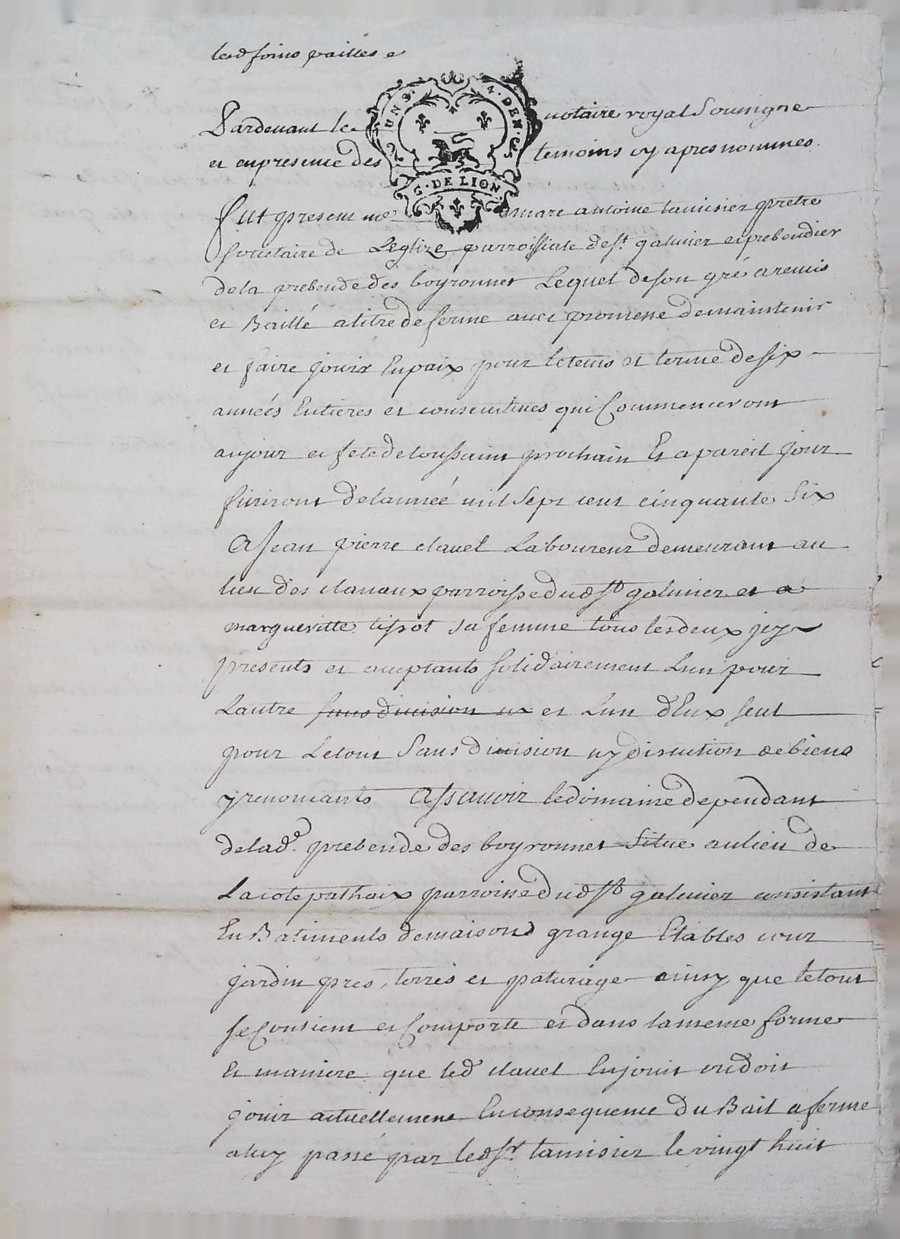 lesd foins pailles e
UN S. 4. DEN
G. DE LION
Pardevant le notaire royal Soussigne
et en presence des temoins cy apres nommes
fut present me marc antoine tamisier pretre
societaire de Leglize parroissiale de st galmier et prebendier
de la prebende des boyronnet Lequel de son gré a remis
et Baillé a titre de ferme avec promesse de maintenir
et faire jouir En paix pour le tems et terme de six
années Entieres et consecutives qui Commenceront
au jour et fete de toussaint prochain Et a pareil jour
finiront de lannée mil sept cent cinquante Six
A Jean pierre clavel Laboureur demeurant au
lieu des clavaux parroisse dud st galmier et a
margueritte tissot sa femme tous les deux icy
presents et acceptants solidairement Lun pour
Lautre sans division ny et Lun dEux seul
pour Le tout Sans division ny discution de biens
y renoncants Assavoir le domaine dependant
de lad. prebende des boyronnet Situe au lieu de
La cote parroisse dud st galmier consistant
En Batiments de maison grange Etables cour
jardin pres, terres et paturage ainsy que le tout
se Contient et Comporte et dans la meme forme
Et maniere que led clavel En jouit ou doit
jouir actuellement En consequence du Bail a ferme
a luy passé par led sr tamisier le vingt huit